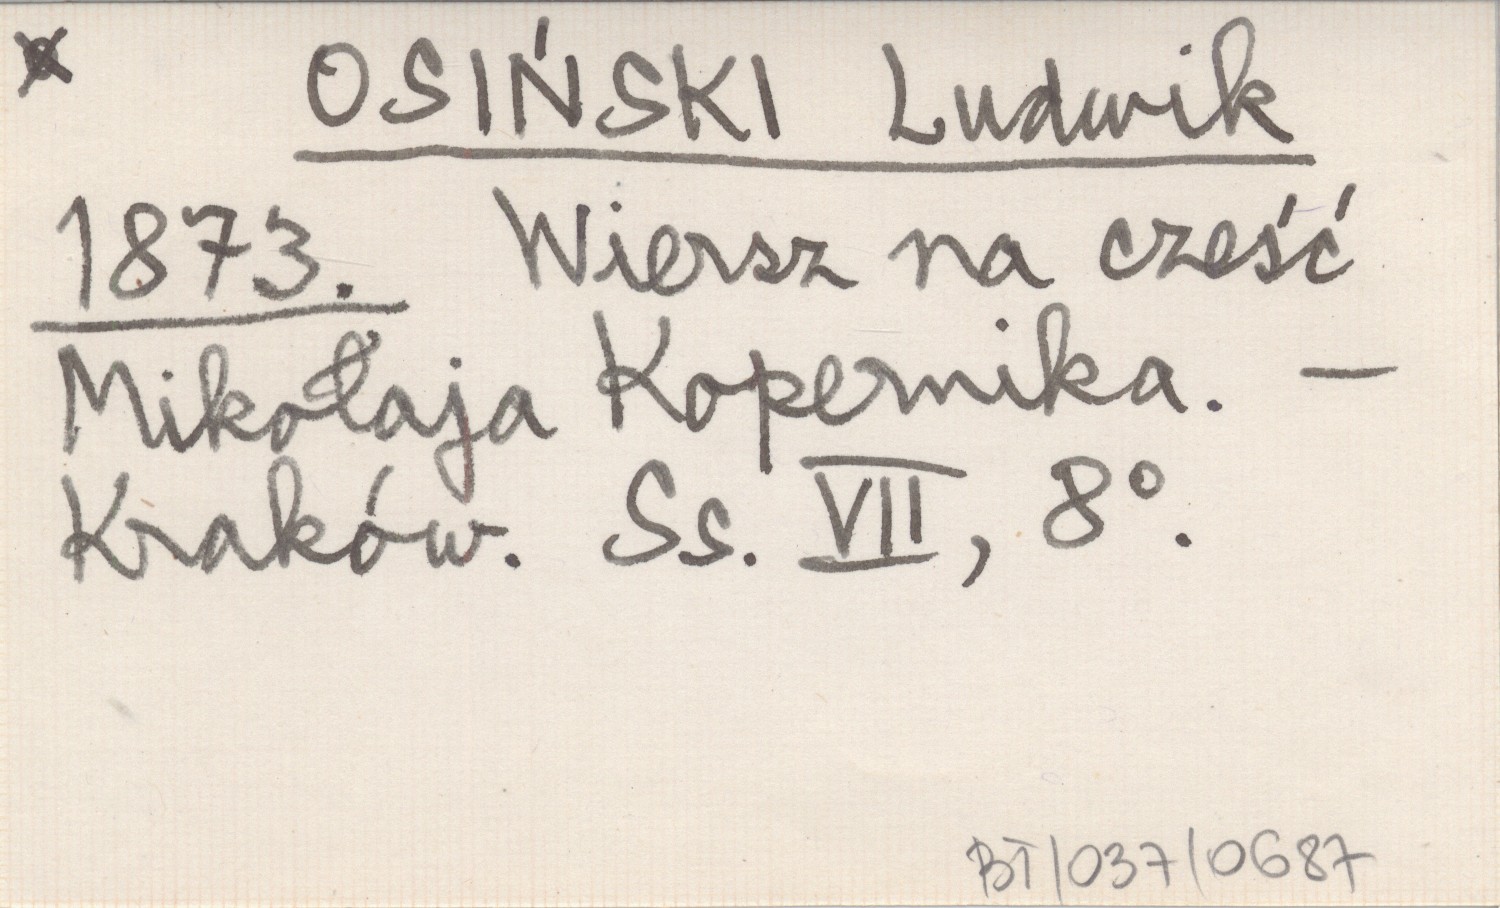 x OSIŃSKI Ludwik
1873. Wiersz na cześć
Mikołaja Kopernika. —
Kraków. Ss. VII, 8°.
BT/037/0687